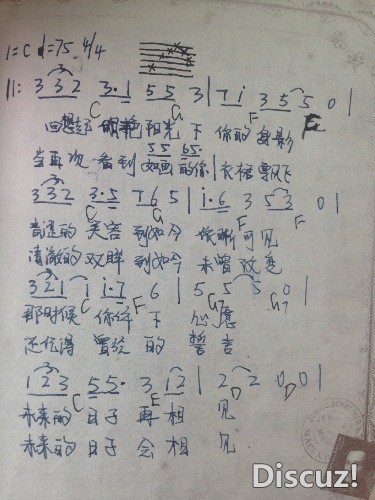 1=C ♩=75 4/4
||: 3 3 2 3·1 5 5 3 | 7 i 3 5 5 0 |
C G F F
回想起 阳光下 你的身影
5 5 6 5·
当再次看到 如画的你 | 衣裙飘飞
3 3 2 3·5 7 6 5 | i·6 3 5 3 0 |
C G F F
的笑容 到如今 依晰可见
清澈的双眸 到如今 未曾改变
3 2 1 1 i·7 6 | 5 5 5 0 |
C G7 G7
那时候 你许下 心愿
还记得 曾经的誓言
1 2 3 5 5· 3 1 2 | 2 2 0 0 |
C E D D
未来的日子再相见
未来的日子会相见
Discuz!